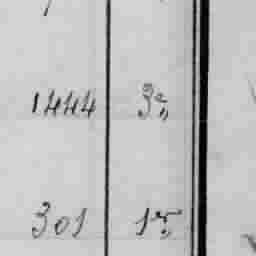 1444 3e
301 1re